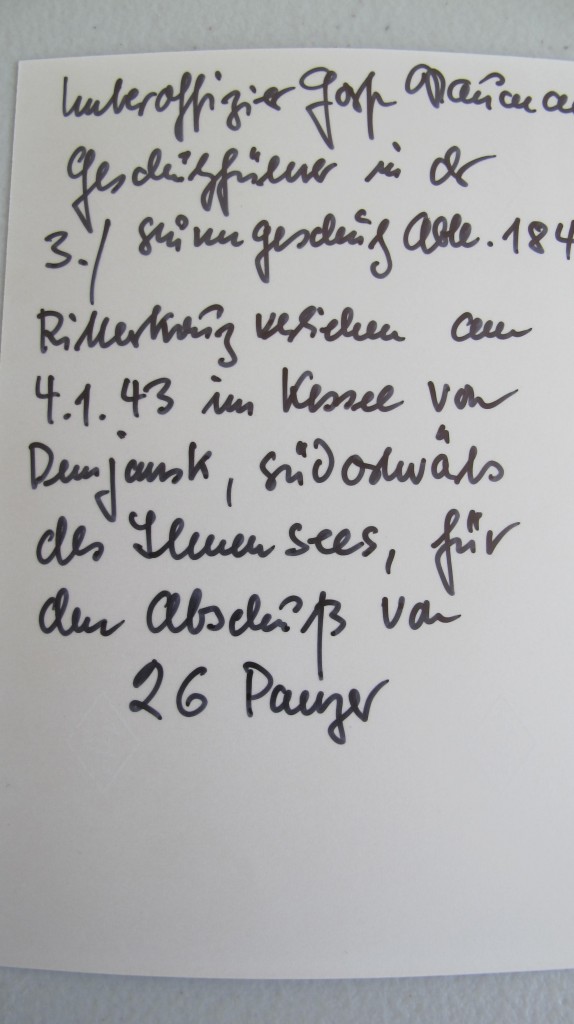 Unteroffizier Horst Nauman
Geschützführer in der
3./ Sturmgeschütz Abtl. 184
Ritterkreuz verliehen am
4.1.43 im Kessel von
Demjansk, südostwärts
des Ilmensees, für
den Abschuß von
26 Panzer